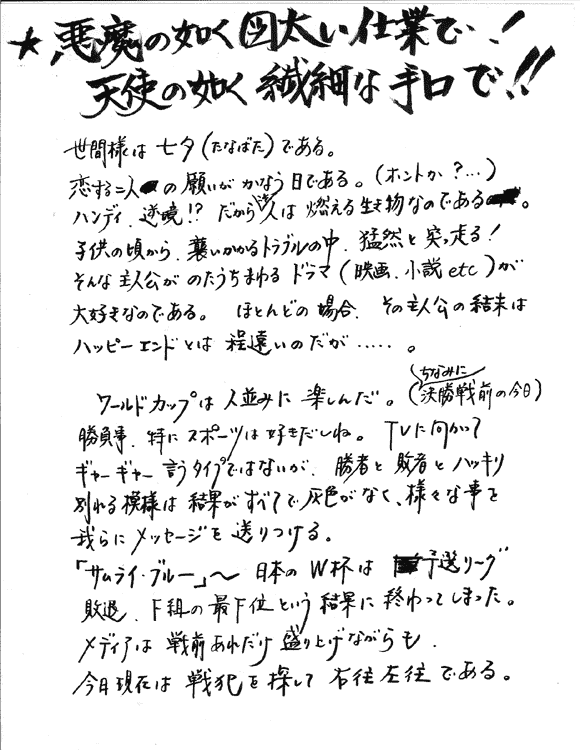 ★悪魔の如く図太い仕業で!
天使の如く繊細な手口で!!
世間様は七夕(たなばた)である。
恋する二人の願いがかなう日である。(ホントか?…)
ハンディ、逆境!? だから人は燃える生き物なのである。
子供の頃から、襲いかかるトラブルの中、猛然と突っ走る!
そんな主人公がのたうちまわるドラマ(映画、小説etc)が
大好きなのである。ほとんどの場合、その主人公の結末は
ハッピーエンドとは程遠いのだが……。
ワールドカップは人並みに楽しんだ。(ちなみに決勝戦前の今日)
勝負事、特にスポーツは好きだしね。TVに向かって
ギャーギャー言うタイプではないが、勝者と敗者とハッキリ
別れる模様は結果がすべてで灰色がなく、様々な事を
我らにメッセージを送りつける。
「サムライ・ブルー」〜日本のW杯は予選リーグ
敗退、F組の最下位という結果に終わってしまった。
メディアは戦前あれだけ盛り上げながらも、
今日現在は戦犯を探して右往左往である。